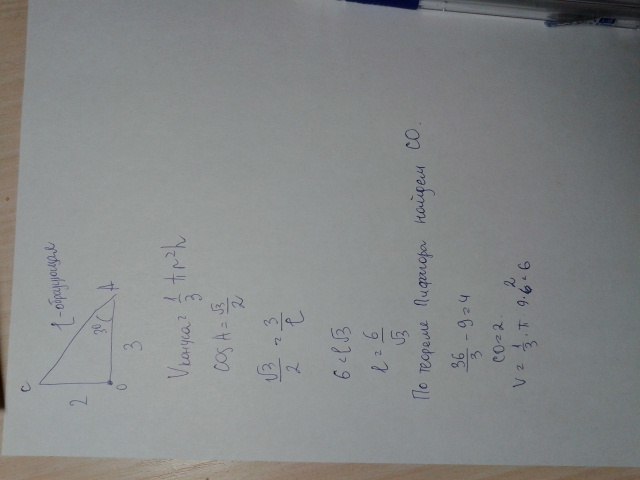 C
l - образующая
2
30
A
O
3
Vконуса = 1/3 πr²h
cos A = √3/2
√3/2 = 3/l
6 = l√3
l = 6/√3
По теореме Пифагора найдем CO.
36/3 - 9 = 4
CO = 2